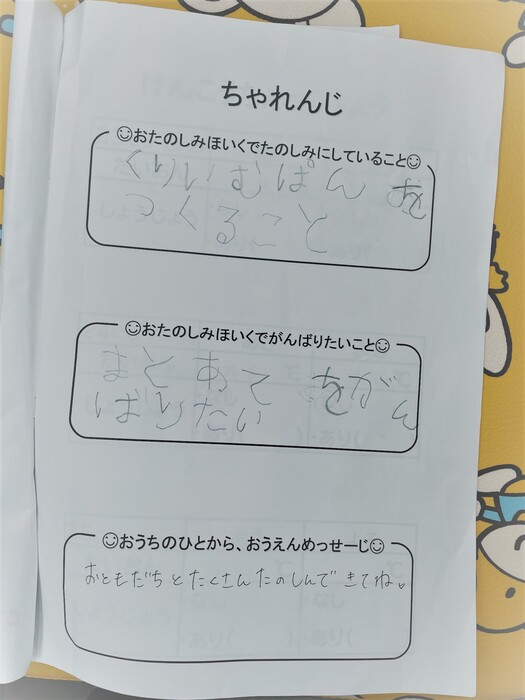 ちゃれんじ
☺おたのしみほいくでたのしみにしていること☺
くりいむぱん を
つくること
☺おたのしみほいくでがんばりたいこと☺
まとあて をがん
ばりたい
☺おうちのひとから、おうえんめっせーじ☺
おともだちとたくさんたのしんできてね♥